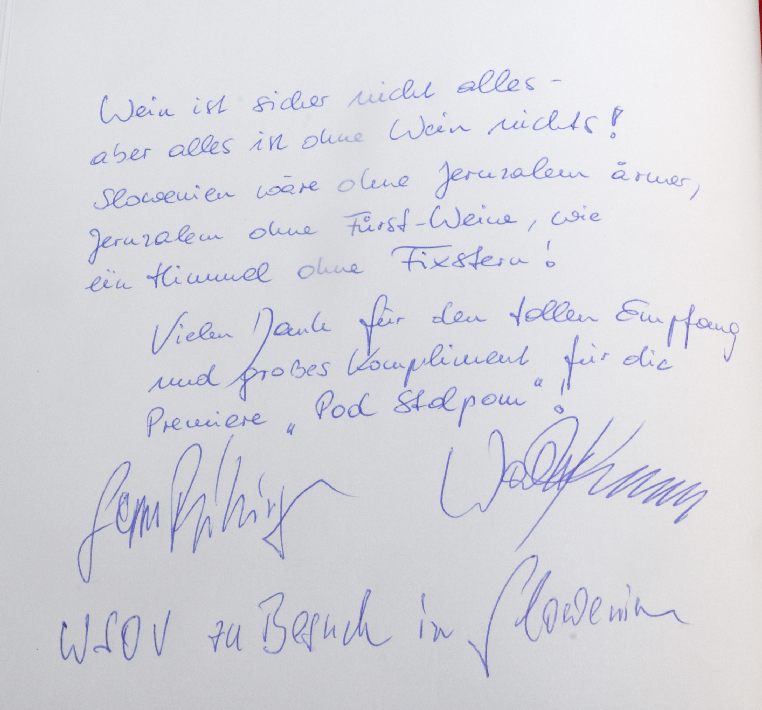 Wein ist sicher nicht alles -
aber alles ist ohne Wein nichts!
Slowenien wäre ohne Jeruzalem ärmer,
Jeruzalem ohne Fürst-Weine, wie
ein Himmel ohne Fixstern!
Vielen Dank für den tollen Empfang
und großes Kompliment für die
Premiere „Pod Stolpom“!
WSOV zu Besuch in Slowenien